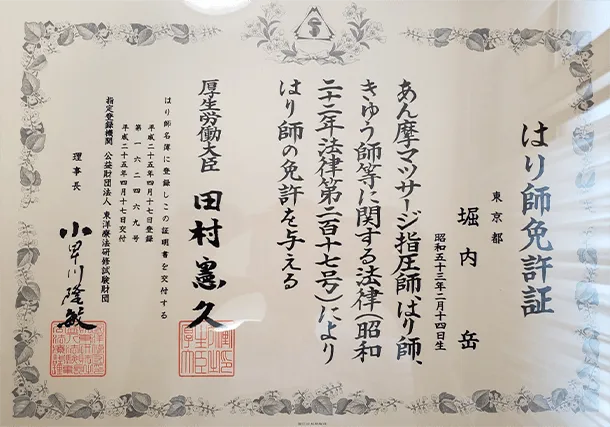 はり師免許証
東京都
堀内 岳
昭和五十三年二月十四日生
あん摩マツサージ指圧師、はり師、
きゆう師等に関する法律（昭和
二十二年法律第二百十七号）により
はり師の免許を与える
厚生労働大臣 田村憲久
はり師名簿に登録しこの証明書を交付する
平成二十五年四月十七日登録
第一六二四六九号
平成二十五年四月十七日交付
指定登録機関 公益財団法人 東洋療法研修試験財団
理事長 小早川隆敏